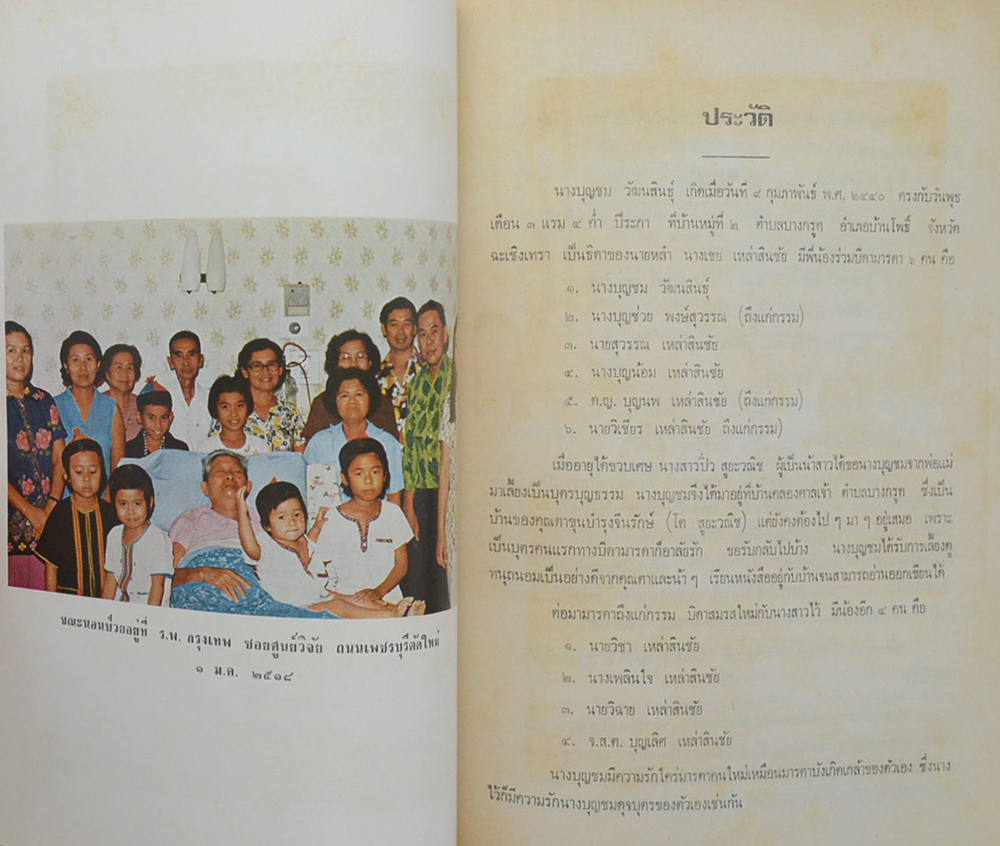 ขณะนอนป่วยอยู่ที่ ร.พ. กรุงเทพ ซอยศูนย์วิจัย ถนนเพชรบุรีตัดใหม่
๑ ม.ค. ๒๕๑๘
ประวัติ
นางบุญชม วัฒนสินธุ์ เกิดเมื่อวันที่ ๙ กุมภาพันธ์ พ.ศ. ๒๔๔๐ ตรงกับวันพุธ
เดือน ๓ แรม ๔ ค่ำ ปีระกา ที่บ้านหมู่ที่ ๒ ตำบลบางกรูด อำเภอบ้านโพธิ์ จังหวัด
ฉะเชิงเทรา เป็นธิดาของนายหลำ นางเชย เหล่าสินชัย มีพี่น้องร่วมบิดามารดา ๖ คน คือ
๑. นางบุญชม วัฒนสินธุ์
๒. นางบุญช่วย พงษ์สุวรรณ (ถึงแก่กรรม)
๓. นายสุวรรณ เหล่าสินชัย
๔. นางบุญน้อม เหล่าสินชัย
๕. ด.ญ. บุญนพ เหล่าสินชัย (ถึงแก่กรรม)
๖. นายวิเชียร เหล่าสินชัย ถึงแก่กรรม)
เมื่ออายุได้ขวบเศษ นางสาวปิ๋ว สูยะวณิช ผู้เป็นน้าสาวได้ขอนางบุญชมจากพ่อแม่
มาเลี้ยงเป็นบุตรบุญธรรม นางบุญชมจึงได้มาอยู่ที่บ้านคลองศาลเจ้า ตำบลบางกรูด ซึ่งเป็น
บ้านของคุณตาขุนบำรุงจีนรักษ์ (โต สูยะวณิช) แต่ยังคงต้องไป ๆ มา ๆ อยู่เสมอ เพราะ
เป็นบุตรคนแรกทางบิดามารดาก็อาลัยรัก ขอรับกลับไปบ้าง นางบุญชมได้รับการเลี้ยงดู
ทนุถนอมเป็นอย่างดีจากคุณตาและน้า ๆ เรียนหนังสืออยู่กับบ้านจนสามารถอ่านออกเขียนได้
ต่อมามารดาถึงแก่กรรม บิดาสมรสใหม่กับนางสาวไว้ มีน้องอีก ๔ คน คือ
๑. นายวิชา เหล่าสินชัย
๒. นางเพลินใจ เหล่าสินชัย
๓. นายวิฉาย เหล่าสินชัย
๔. จ.ส.ต. บุญเลิศ เหล่าสินชัย
นางบุญชมมีความรักใคร่มารดาคนใหม่เหมือนมารดาบังเกิดเกล้าของตัวเอง ซึ่งนาง
ไว้ก็มีความรักนางบุญชมดุจบุตรของตัวเองเช่นกัน